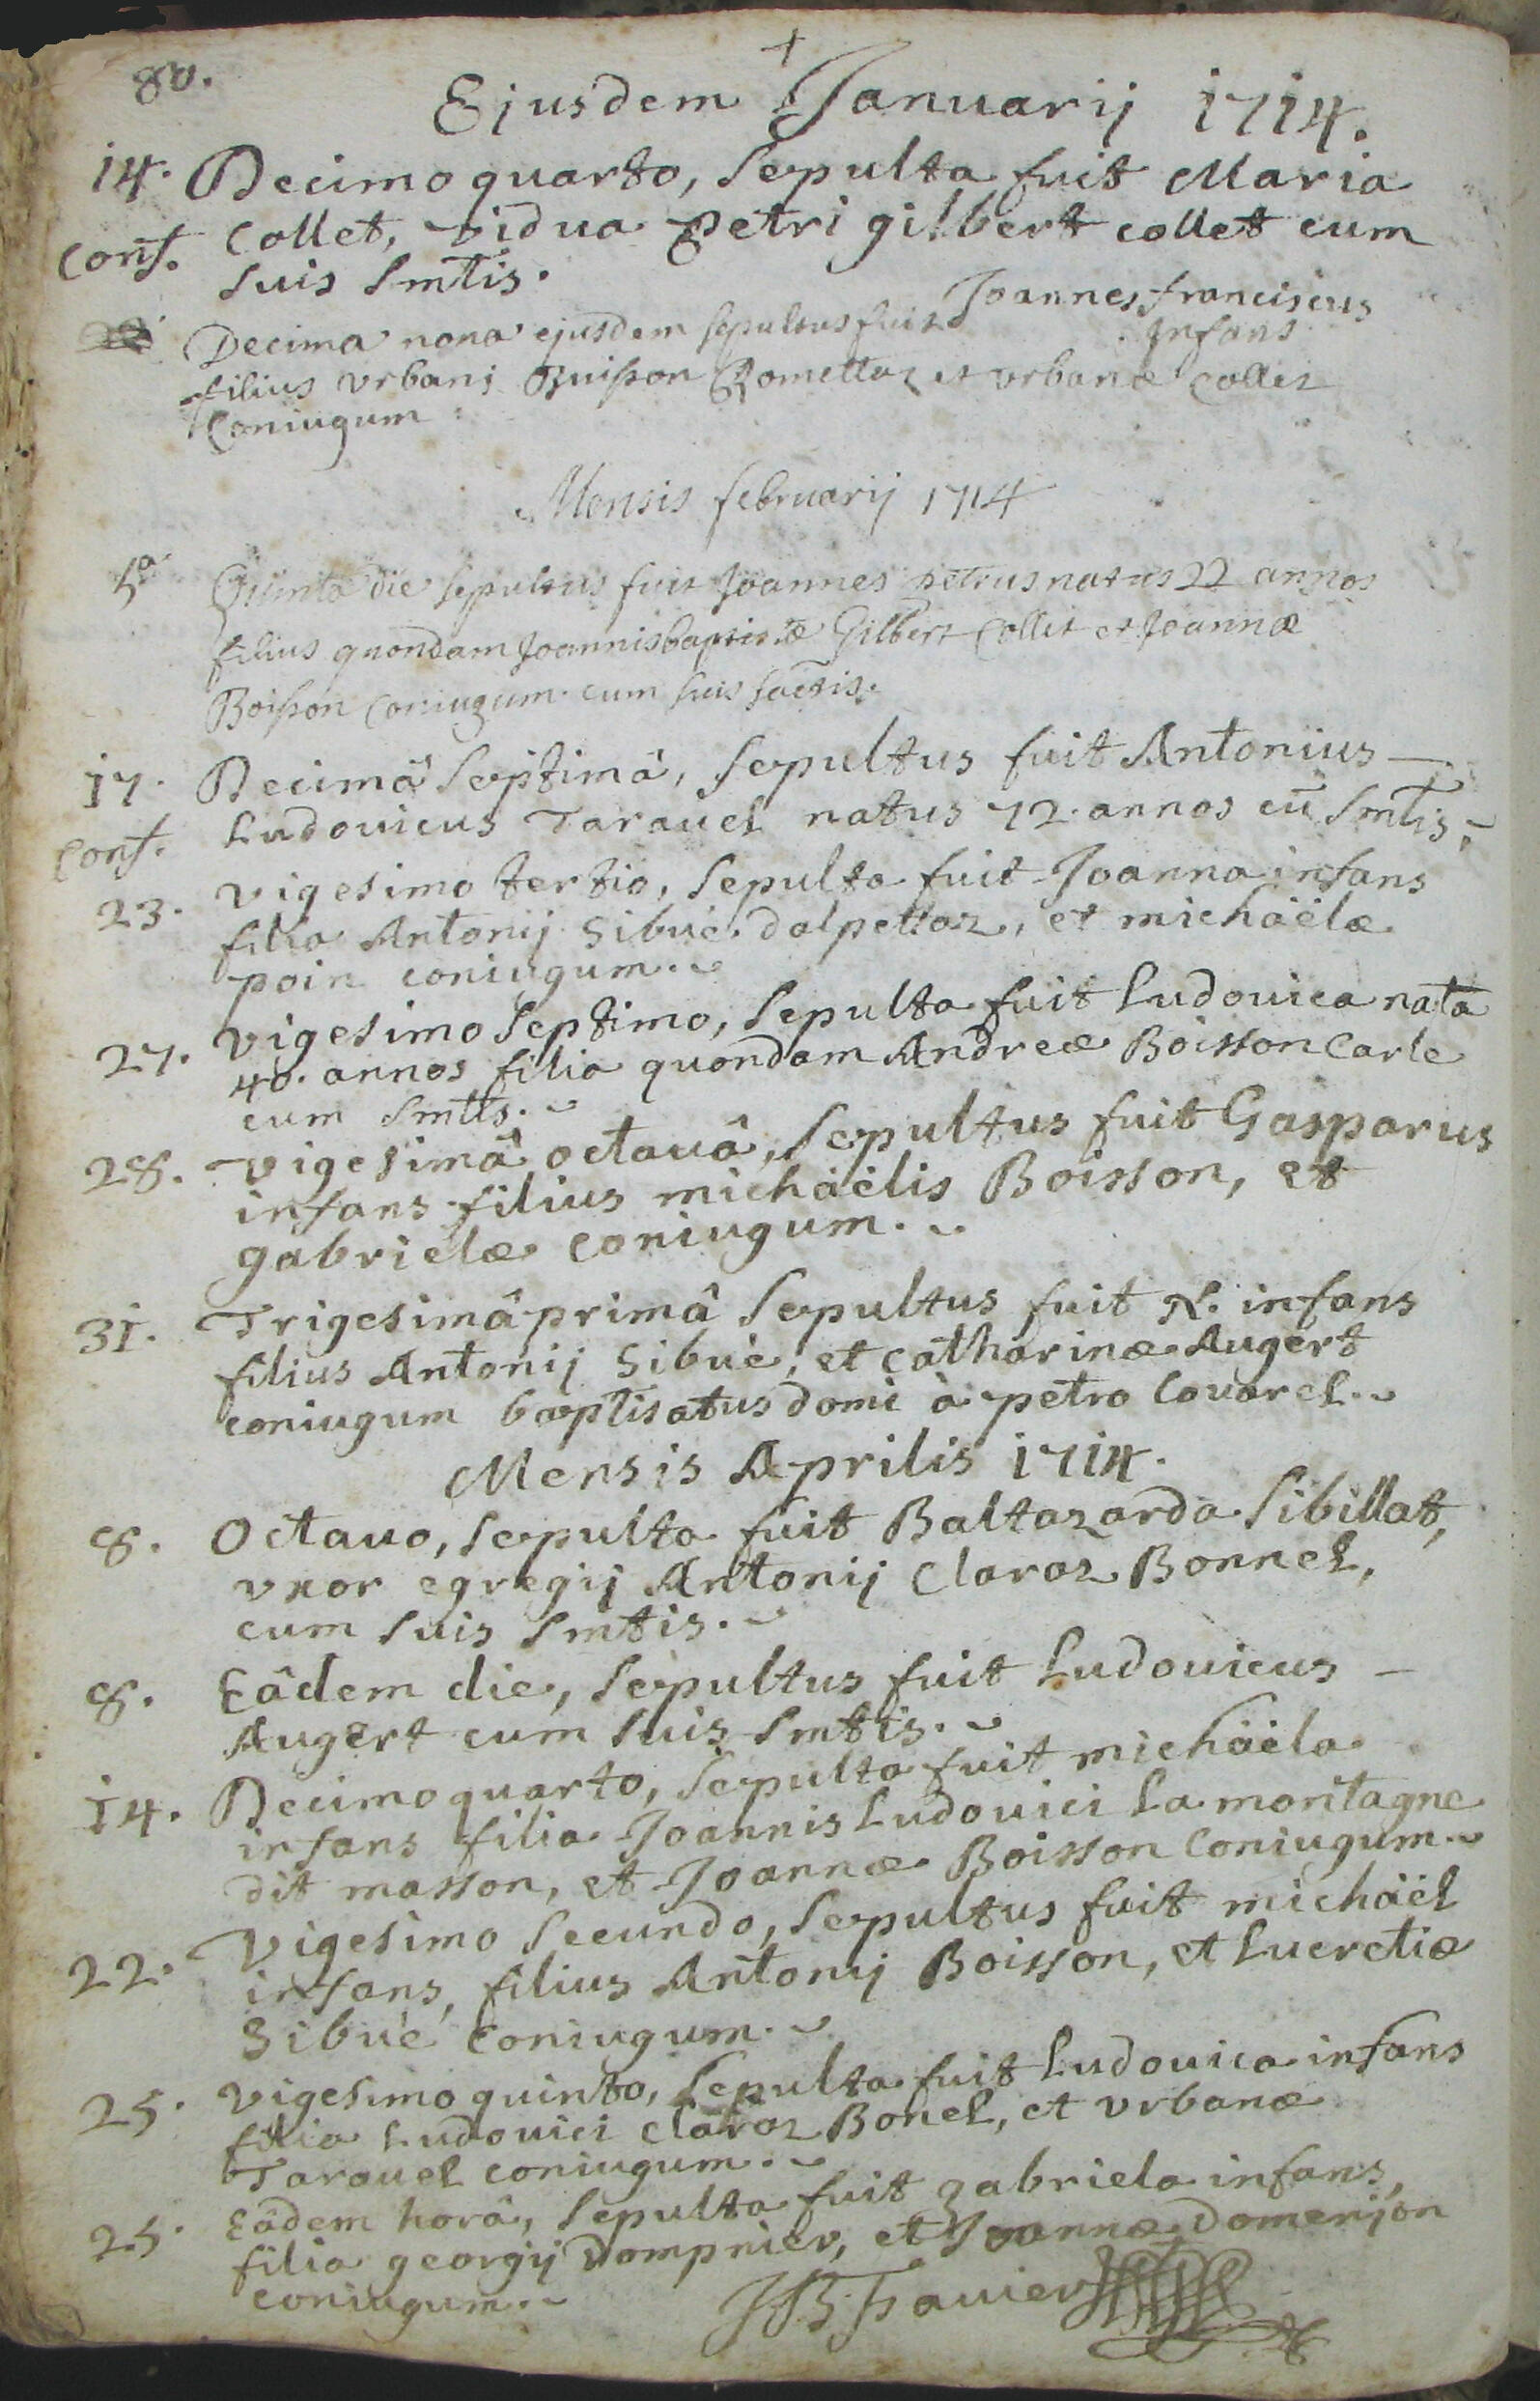 80.
+
Ejusdem Januarij 1714.
14. Decimo quarto, sepulta fuit Maria
Conf. Collet, vidua Petri gilbert collet cum
suis smtis.
Decima nona ejusdem sepultus fuit Joannes franciscus
infans
filius vrbani Buisson Romettaz et vrbanæ Collet
Coniugum
Mensis februarij 1714
5a Quinta die sepultus fuit Joannes petrus natus 22 annos
filius quondam Joannisbaptistæ Gilbert Collet et Joannæ
Boisson Coniugum cum suis sactis.
17. Decimâ septimâ, sepultus fuit Antonius —
Conf. Ludouicus Tarauel natus 72. annos cū smtis.
23. vigesimo tertio, sepulta fuit Joanna infans
filia Antonij Sibué dalpettaz, et michäëlæ
poin coniugum.
27. vigesimo septimo, sepulta fuit Ludouica nata
40. annos filia quondam Andreæ Boisson Carle
cum smtis.
28. vigesimâ octauâ, sepultus fuit Gasparus
infans filius michäëlis Boisson, et
gabrielæ coniugum.
31. Trigesimâ primâ sepultus fuit N. infans
filius Antonij Sibué, et catharinæ Augert
coniugum baptisatus domi à petro Covarel.
Mensis Aprilis 1714.
8. Octauo, sepulta fuit Baltazarda Sibillat,
vxor egregij Antonij Claraz Bonnel,
cum suis smtis.
8. Eâdem die, sepultus fuit Ludouicus —
Augert cum suis smtis.
14. Decimo quarto, sepulta fuit michäëla
infans filia Joannis Ludouici La montagne
dit masson, et Joannæ Boisson Coniugum.
22. Vigesimo secundo, sepultus fuit michäël
infans, filius Antonij Boisson, et Lucretiæ
Sibué coniugum.
25. vigesimo quinto, sepulta fuit Ludouica infans
filia Ludouici Claraz Bonel, et vrbanæ
Tarauel coniugum.
25. Eâdem horâ, sepulta fuit gabriela infans,
filia georgij Dompnier, et Joannæ Domenjon
coniugum.